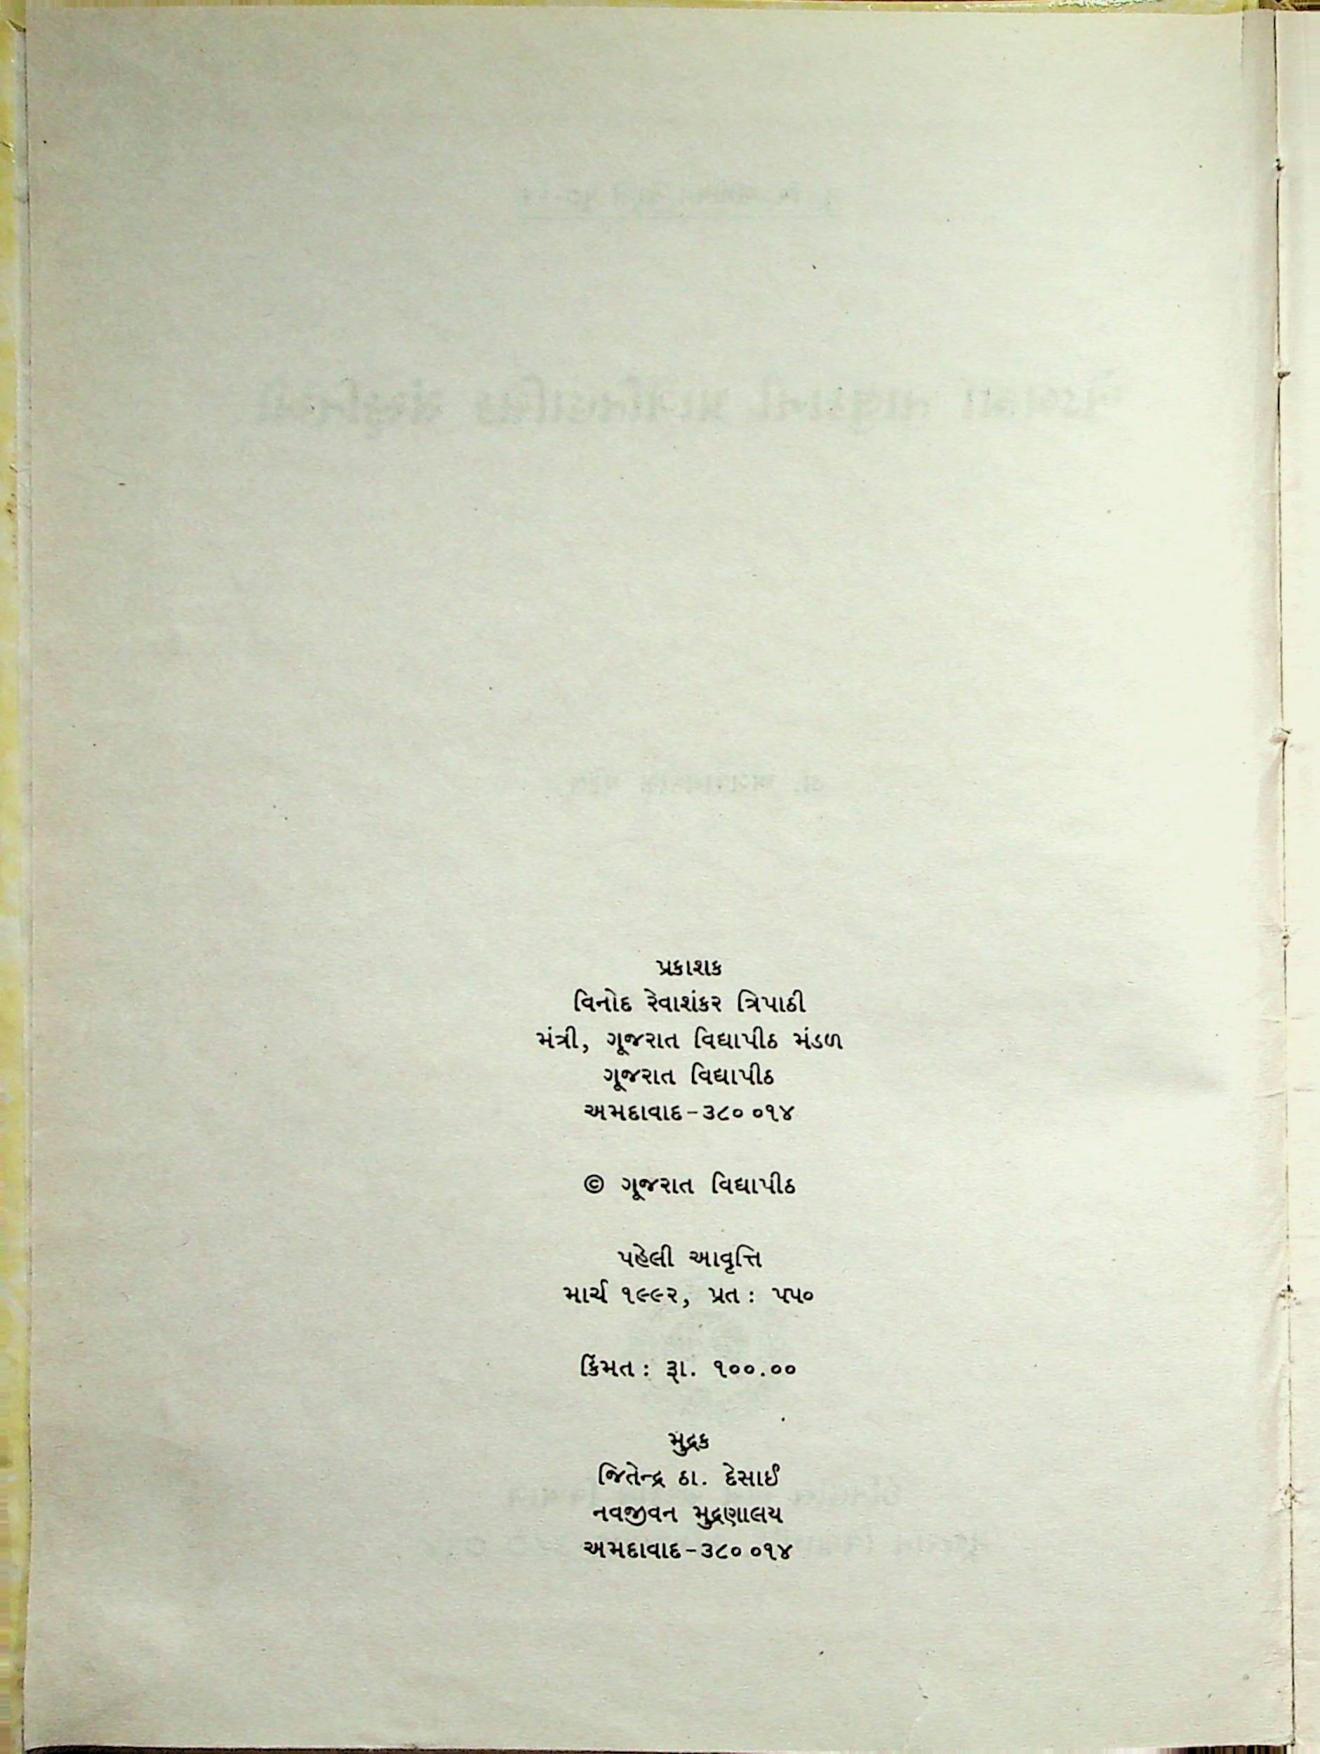 પ્રકાશક
વિનોદ રેવાશંકર ત્રિપાઠી
મંત્રી, ગૂજરાત વિદ્યાપીઠ મંડળ
ગૂજરાત વિદ્યાપીઠ
અમદાવાદ-૩૮૦ ૦૧૪
© ગૂજરાત વિદ્યાપીઠ
પહેલી આવૃત્તિ
માર્ચ ૧૯૯૨, પ્રત : ૫૫૦
કિંમત : રૂા. ૧૦૦.૦૦
મુદ્રક
જિતેન્દ્ર ઠા. દેસાઈ
નવજીવન મુદ્રણાલય
અમદાવાદ-૩૮૦ ૦૧૪